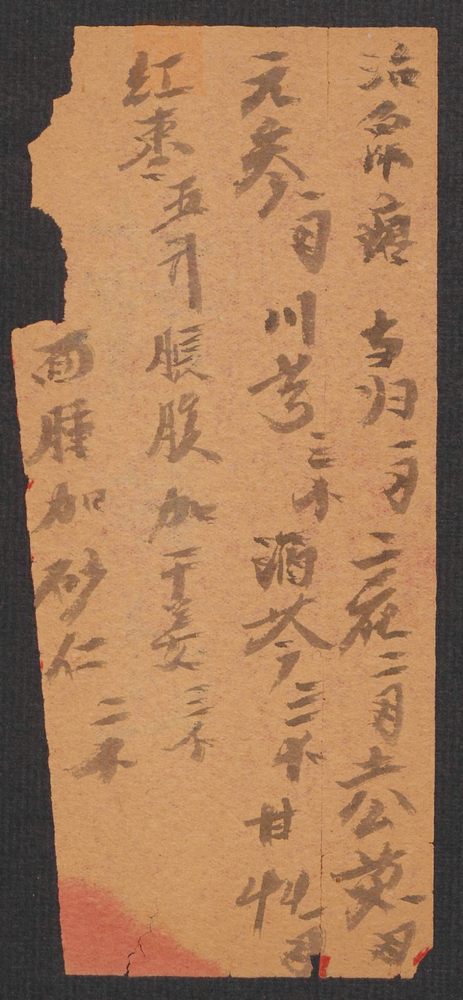 治 当归一两 二花二两 土公英一两
元参一两 川芎三钱 酒芩三钱 甘艸一两
红枣五 脹腹加干姜三钱
面腫加砂仁二钱